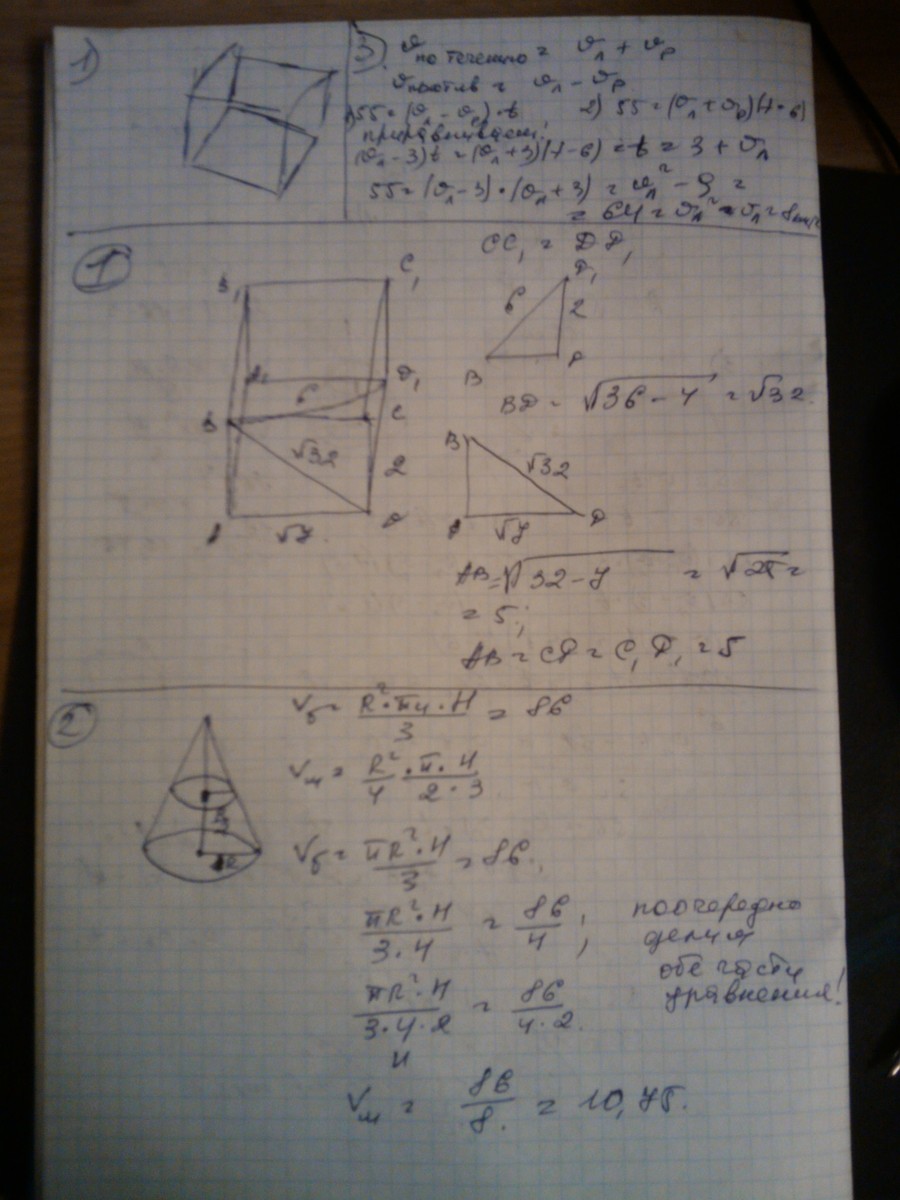 1)
3) υ по течению = υл + υр
υпротив = υл - υр
1) 55 = (υл - υр)·t, 2) 55 = (υл + υр)(t-6)
приравниваем:
(υл - 3)t = (υл + 3)(t - 6) = t = 3 + υл
55 = (υл - 3)·(υл + 3) = υл² - 9 =
= 64 = υл² = υл = 8км/ч
1
CC₁ = DD₁
B₁ C₁
A₁ D₁
6
B C
√32
2
A √7 D
D₁
6 2
B D
BD = √36 - 4 = √32.
B
√32
A √7 D
AB = √32 - 7 = √25 =
= 5;
AB = CD = C₁D₁ = 5
2
Vб = R²·пи·H / 3 = 86
Vм = R²/4 · π·H / 2·3
Vб = πR²·H / 3 = 86.
πR²·H / 3·4 = 86/4;
поочередно
делим
обе части
уравнения!
πR²·H / 3·4·2 = 86 / 4·2.
Vм = 86/8. = 10,75.